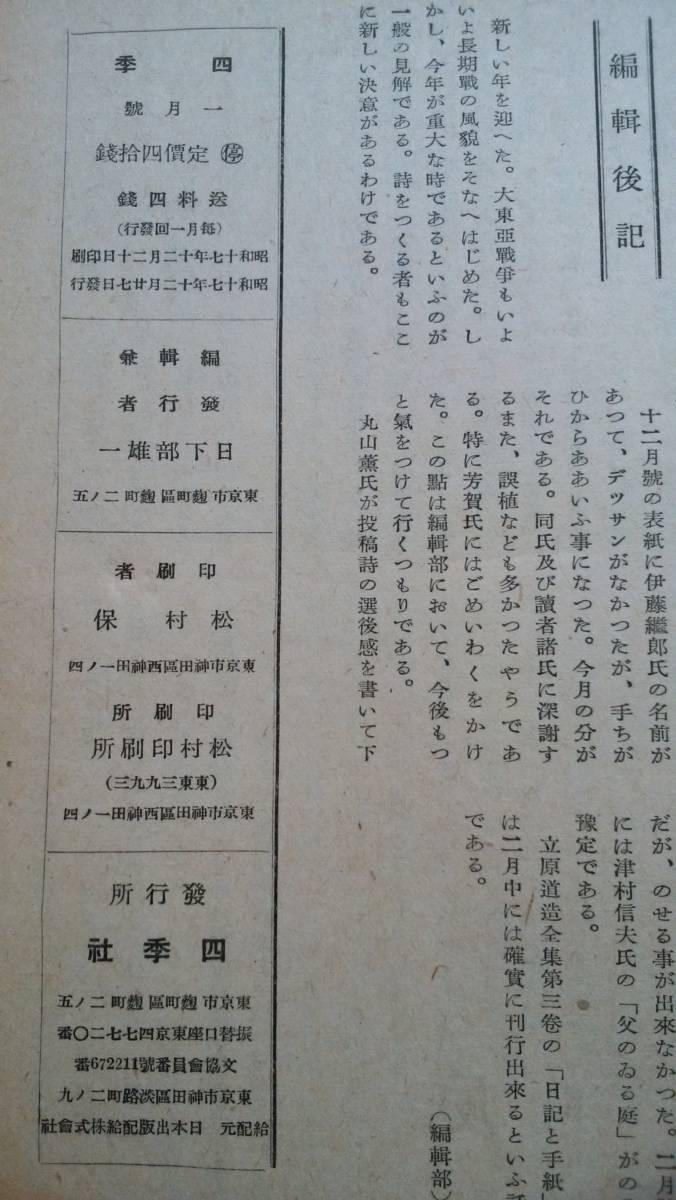 編輯後記
新しい年を迎へた。大東亞戰爭もいよ
いよ長期戰の風貌をそなへはじめた。し
かし、今年が重大な時であるといふのが
一般の見解である。詩をつくる者もここ
に新しい決意があるわけである。
十二月號の表紙に伊藤繼郎氏の名前が
あつて、デツサンがなかつたが、手ちが
ひからああいふ事になつた。今月の分が
それである。同氏及び讀者諸氏に深謝す
るまた、誤植なども多かつたやうであ
る。特に芳賀氏にはごめいわくをかけ
た。この點は編輯部において、今後もつ
と氣をつけて行くつもりである。
丸山薫氏が投稿詩の選後感を書いて下
だが、のせる事が出來なかつた。二月
には津村信夫氏の「父のゐる庭」がの
豫定である。
立原道造全集第三卷の「日記と手紙
は二月中には確實に刊行出來るといふ
である。
(編輯部)
季四
號月一
錢拾四價定 ㊡
錢四料送
(行發回一月每)
刷印日二十月二十年七十和昭
行發日七廿月二十年七十和昭
兼輯編
者行發
一雄部下日
五ノ二町麴區町麴市京東
者刷印
保村松
四ノ一田神西區田神市京東
所刷印
所刷印村松
(三九九三東東)
四ノ一田神西區田神市京東
所行發
社季四
五ノ二町麴區町麴市京東
番〇二七七四京東座口替振
番672211號番員會協文
九ノ二町路淡區田神市京東
社會式株給配版出本日 元配給